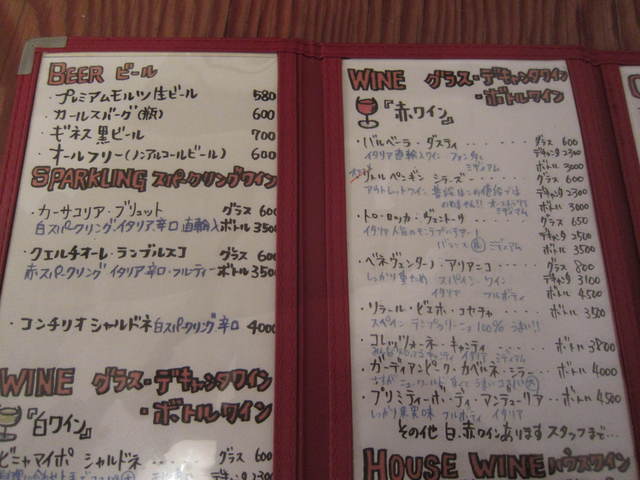 BEER ビール
・プレミアムモルツ 生ビール 580
・カールスバーグ(瓶) 600
・ギネス 黒ビール 700
・オールフリー(ノンアルコールビール) 600
SPARKLING スパークリングワイン
・カーサコリア・ブリュット グラス 600
白スパークリング イタリア 辛口 直輸入 ボトル 3500
・クエルチオーレ・ランブルスコ グラス 600
赤スパークリング イタリア 辛口・フルティー ボトル 3500
・コンチリオ シャルドネ 白スパークリング 辛口 4000
WINE グラス・デキャンタワイン
・ボトルワイン
『白ワイン』
ビニャマイポ シャルドネ グラス 600
デキャンタ 2300
WINE グラス・デキャンタワイン
・ボトルワイン
『赤ワイン』
・バルベーラ・ダスティ グラス 600
イタリア 直輸入ワイン ミディアム デキャンタ 2300
ボトル 3000
・ヴェルペンギン シラーズ グラス 600
アウトレットワイン デキャンタ 2300
ミディアム ボトル 3000
・トロ・ロッカ・ヴェントーサ グラス 650
イタリア デキャンタ 2500
ミディアム ボトル 3500
・ベネヴェンターノ・アリアニコ グラス 800
しっかり重ため デキャンタ 3100
イタリア フルボディ ボトル 4500
・リラール・ビエホ・コセチャ ボトル 3500
スペイン テンプラリーニョ 100% うまい!!
・コレッツォーネ・キャンティ ボトル 3800
イタリア ミディアム
・ガーディアンピーク・カベルネ・シラー ボトル 4000
・プリミティーボ・ディ・マンデューリア ボトル 4500
しっかり果実味 フルボディ イタリア
その他 白、赤ワインあります スタッフまで…
HOUSE WINE ハウスワイン